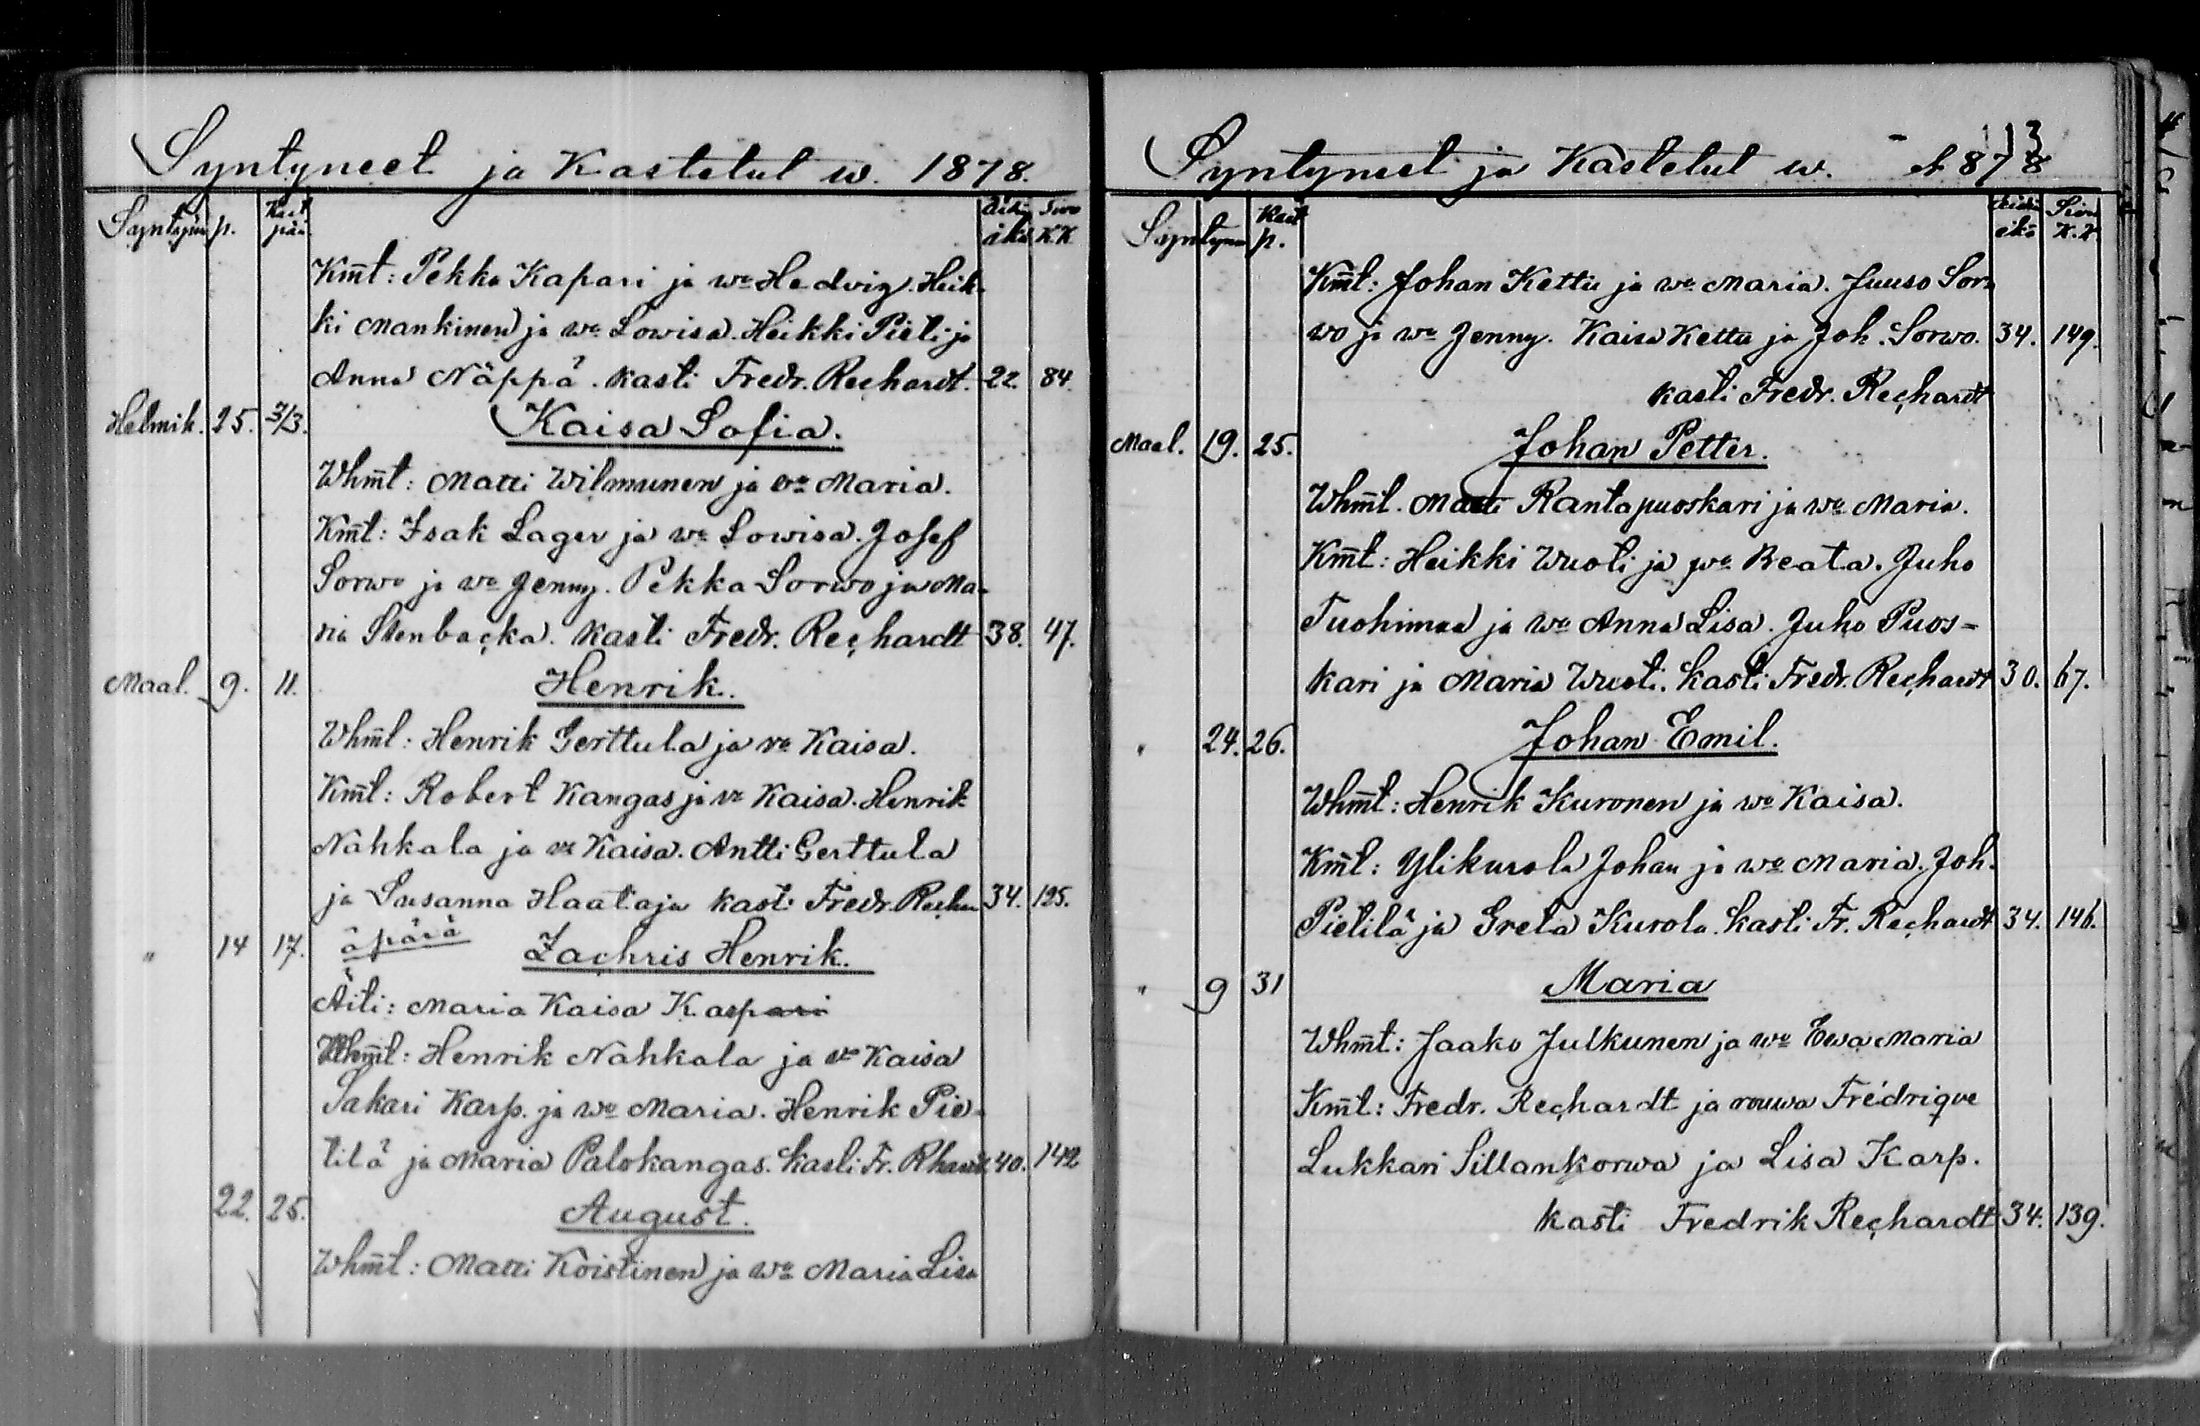 Syntyneet ja Kastetut w. 1878.
Syntym p. Kast pää Äidin ikä Siwu KK
Km̄t: Pekka Kapari ja wo Hedvig. Heik-
ki Mankinen ja wo Lowisa. Heikki Pieti ja
Anna Näppä. kasti Fredr. Rechardt. 22. 84.
Helmik. 25. 3/3. Kaisa Sofia.
Whm̄t: Matti Wilmunen ja wo Maria.
Km̄t: Isak Lager ja wo Lowisa. Josef
Sorwo ja wo Jenny. Pekka Sorwo ja Ma-
ria Stenbacka. kasti Fredr. Rechardt 38. 47.
Maal. 9. 11. Henrik.
Whm̄t: Henrik Gerttula ja wo Kaisa.
Km̄t: Robert Kangas ja wo Kaisa. Henrik
Nahkala ja wo Kaisa. Antti Gerttula
ja Susanna Haataja kasti Fredr. Rechar 34. 125.
" 14 17. äpärä Zachris Henrik.
Äiti: Maria Kaisa Kaspari
Whm̄t: Henrik Nahkala ja wo Kaisa
Sakari Karp. ja wo Maria. Henrik Pie-
tilä ja Maria Palokangas. kasti Fr. Rhardt 40. 142
22. 25. August.
Whm̄t: Matti Koistinen ja wo Maria Lisa
113
Syntyneet ja Kastetut w. 1878
Syntym Kast p. Äidin ikä Siwu K.K.
Km̄t: Johan Kettu ja wo Maria. Juuso Sor-
wo ja wo Jenny. Kaisa Kettu ja Joh. Sorwo. 34. 149.
kasti Fredr. Rechardt
Maal. 19. 25. Johan Petter.
Whm̄t. Matti Rantapuoskari ja wo Maria.
Km̄t: Heikki Wuoti ja wo Beata. Juho
Tuohimaa ja wo Anna Lisa. Juho Puos-
kari ja Maria Wuoti. kasti Fredr. Rechardt 30. 67.
" 24. 26. Johan Emil.
Whm̄t: Henrik Kuronen ja wo Kaisa.
Km̄t: Ylikurola Johan ja wo Maria. Joh.
Pietilä ja Greta Kurola. kasti Fr. Rechardt 34. 146.
" 9 31 Maria
Whm̄t: Jaako Julkunen ja wo Ewa Maria
Km̄t: Fredr. Rechardt ja rouwa Frédrique
Lukkari Sillankorwa ja Lisa Karp.
kasti Fredrik Rechardt 34. 139.